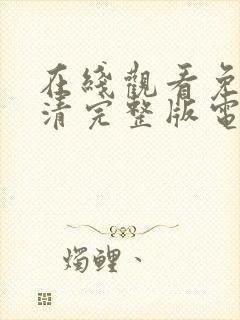 在綫觀看免
清完整版電
燭鯉、